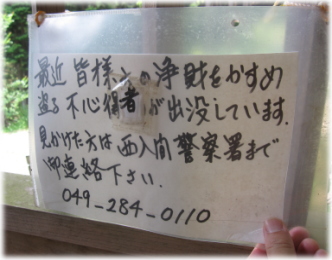 最近皆様の浄財をかすめ
盗る不心得者が出没しています.
見かけた方は西入間警察署まで
御連絡下さい.
049-284-0110